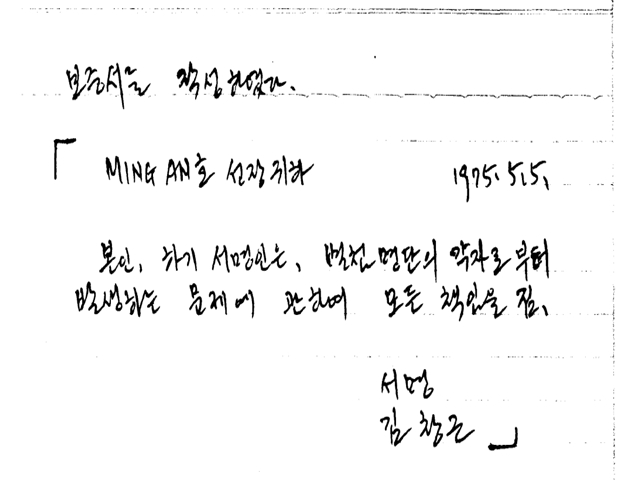 보증서를 작성하였다.
「 MING AN호 선장귀하 1975. 5.5.
본인, 하기 서명인은, 별첨명단의 약자로부터
발생하는 문제에 관하여 모든 책임을 짐.
서명
김창근 」